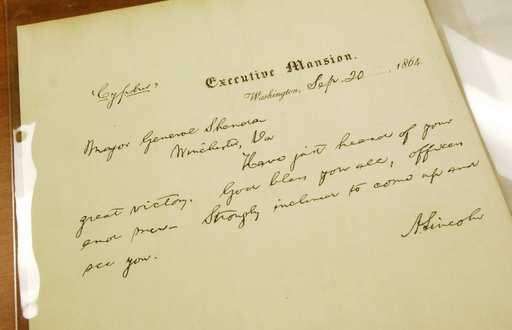 "Cypher"
Executive Mansion.
Washington, Sep. 20 1864
Major General Sheridan
Winchester, Va
Have just heard of your
great victory. God bless you all, officers
and men. Strongly inclined to come up and
see you.
A. Lincoln